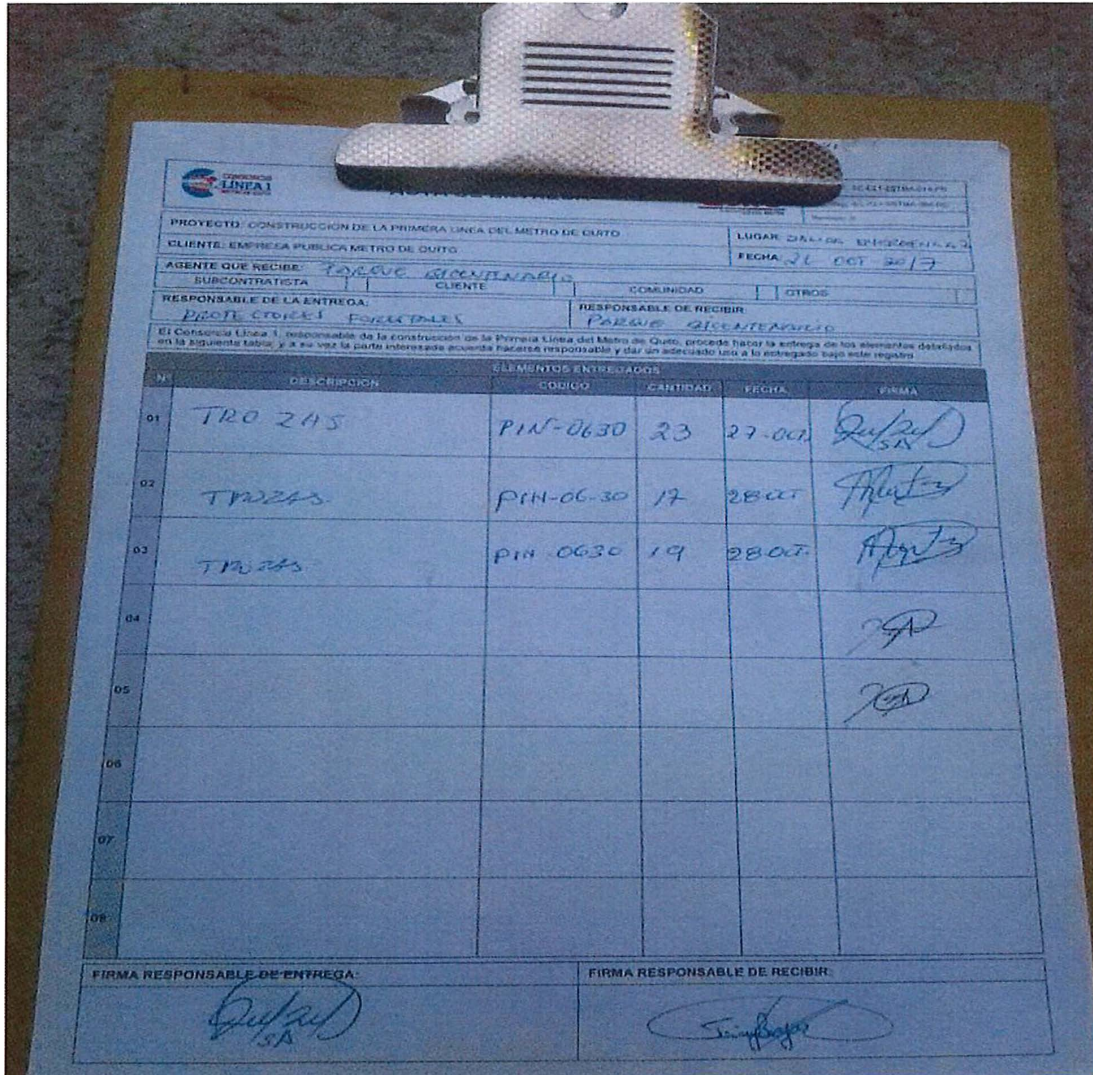 CONSORCIO
LÍNEA 1
METRO DE QUITO
PROYECTO: CONSTRUCCIÓN DE LA PRIMERA LÍNEA DEL METRO DE QUITO
LUGAR:
CLIENTE: EMPRESA PUBLICA METRO DE QUITO
FECHA: OCT 2017
AGENTE QUE RECIBE: PARQUE BICENTENARIO
SUBCONTRATISTA CLIENTE COMUNIDAD OTROS
RESPONSABLE DE LA ENTREGA: RESPONSABLE DE RECIBIR:
PROTECTORES FORESTALES PARQUE BICENTENARIO
El Consorcio Línea 1, responsable de la construcción de la Primera Línea del Metro de Quito, procede hacer la entrega de los elementos detallados
en la siguiente tabla, y a su vez la parte interesada acuerda hacerse responsable y dar un adecuado uso a lo entregado bajo este registro
ELEMENTOS ENTREGADOS
N° DESCRIPCIÓN CODIGO CANTIDAD FECHA FIRMA
01 TROZAS PIN-0630 23 27-OCT.
02 TROZAS. PIN-06-30 17 28 OCT
03 TROZAS PIN-0630 19 28 OCT.
04
05
06
07
08
FIRMA RESPONSABLE DE ENTREGA: FIRMA RESPONSABLE DE RECIBIR: